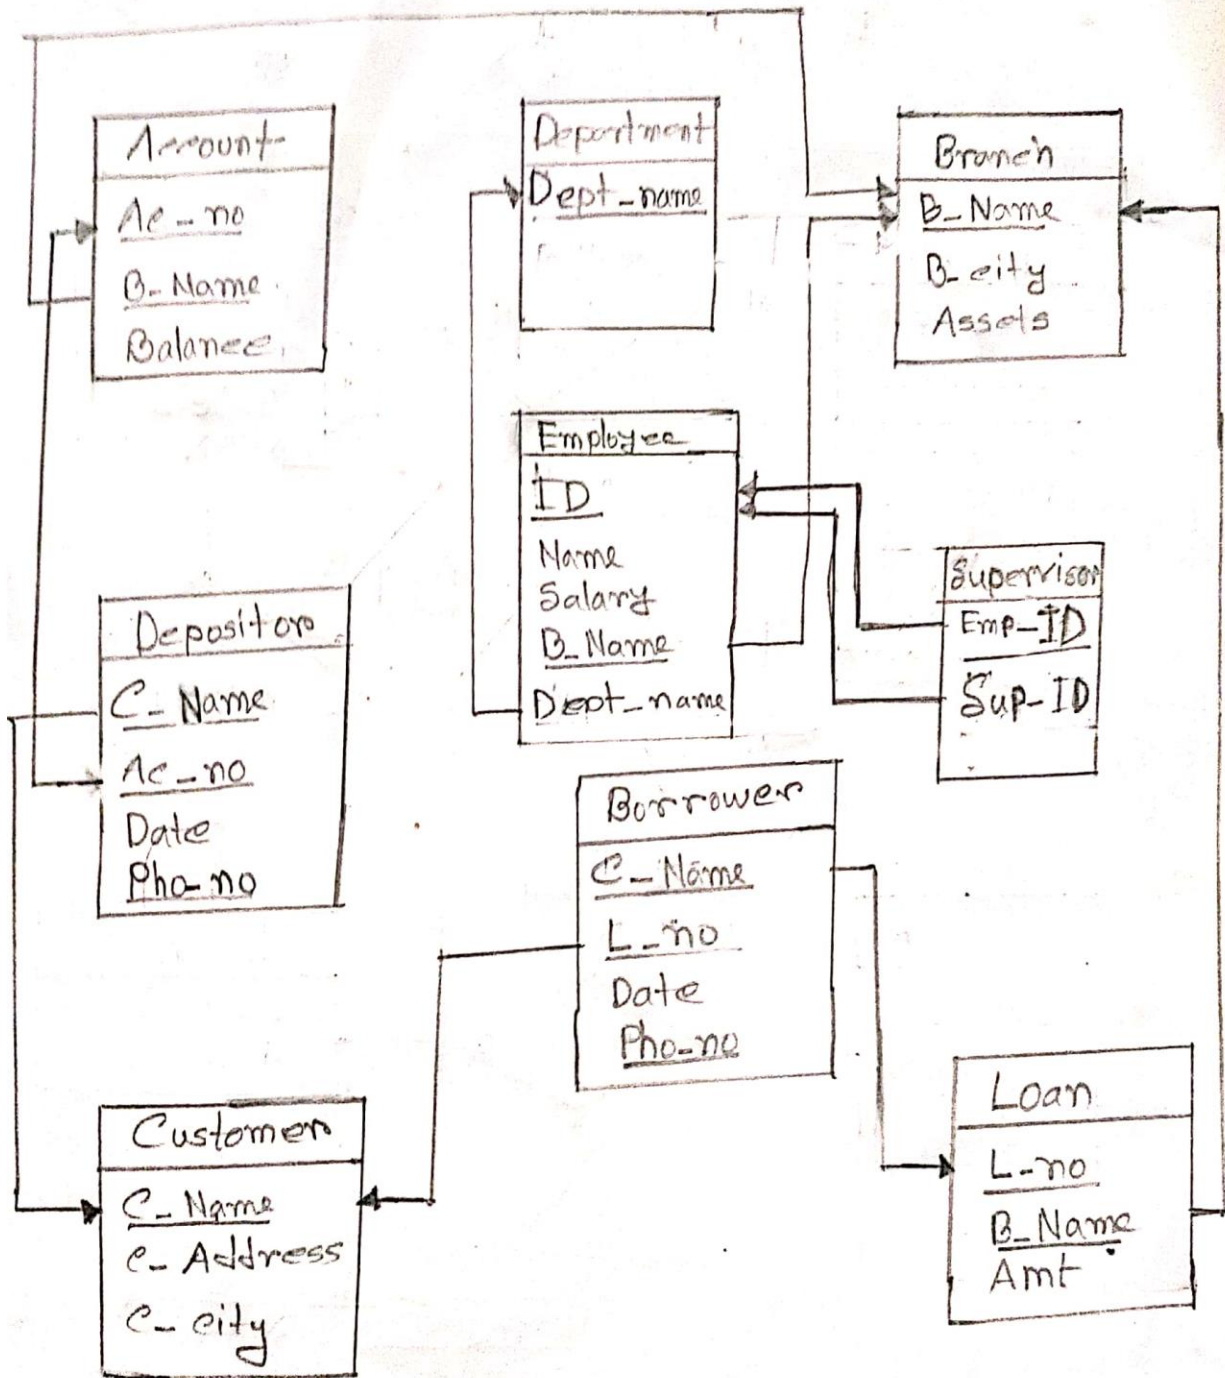 Account
Ac_no
B_Name
Balance
Department
Dept_name
Branch
B_Name
B_city
Assets
Employee
ID
Name
Salary
B_Name
Dept_name
Supervisor
Emp_ID
Sup_ID
Depositor
C_Name
Ac_no
Date
Pho_no
Borrower
C_Name
L_no
Date
Pho_no
Customer
C_Name
C_Address
C_city
Loan
L_no
B_Name
Amt